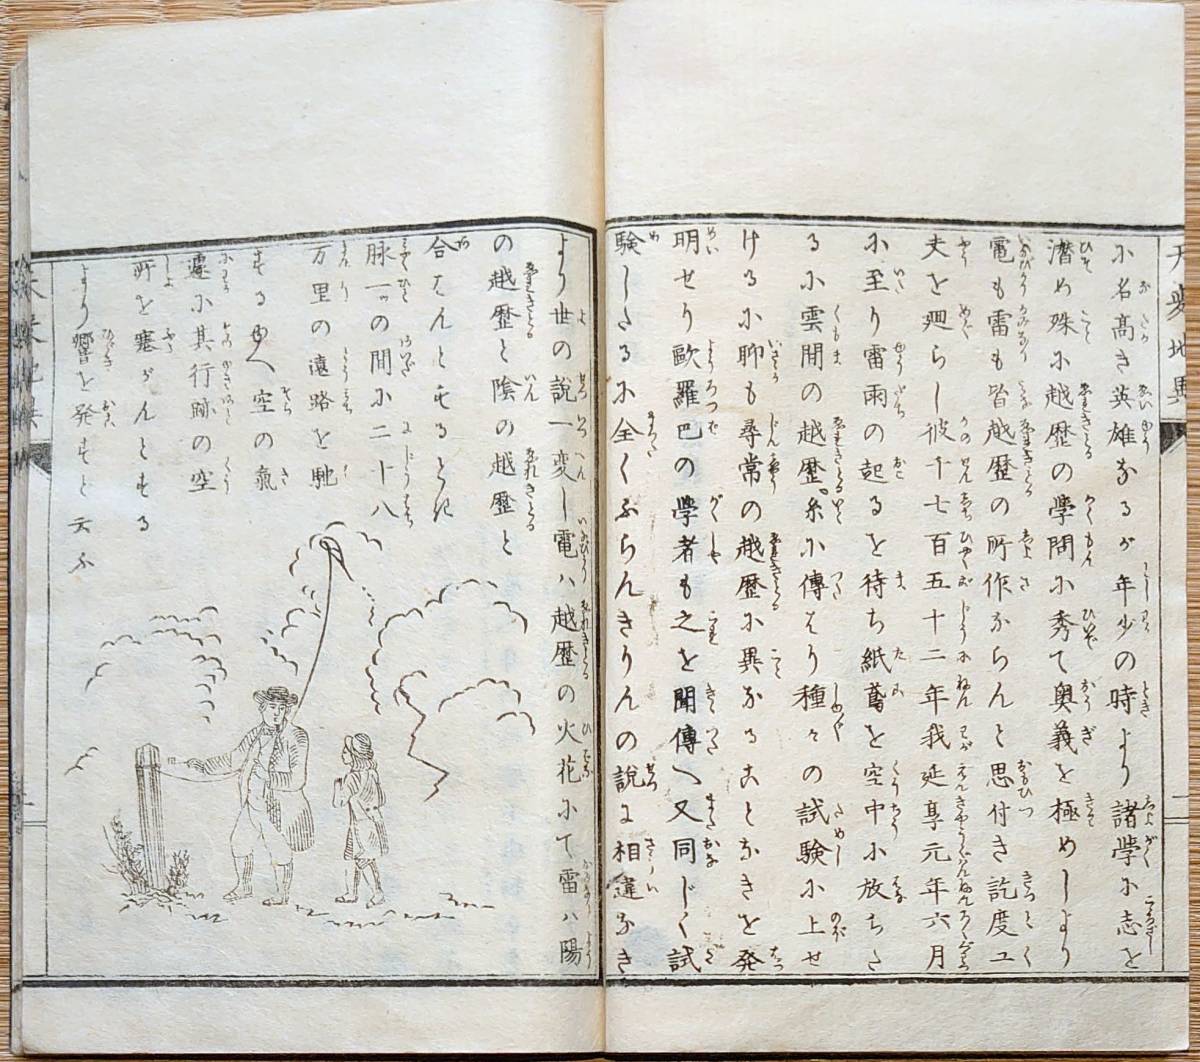 天変地異
に名高き英雄なるが年少の時より諸学に志を
潜め殊に越歴の學問に秀て奥義を極めしより
電も雷も皆越歴の所作ならんと思付き訖度工
夫を廻らし彼千七百五十二年我延享元年六月
に至り雷雨の起るを待ち紙鳶を空中に放ちた
るに雲間の越歴糸に傳はり種々の試験に上せ
けるに聊も尋常の越歴に異なることなきを発
明せり歐羅巴の學者も之を聞傳へ又同じく試
験したるに全くふらんきりんの説に相違なき
より世の説一変し電ハ越歴の火花にて雷ハ陽
の越歴と陰の越歴と
合はんとするとき
脉一ツの間に二十八
万里の遠路を馳
する由へ空の氣
遽に其行跡の空
所を塞がんとする
より響を発すと云ふ